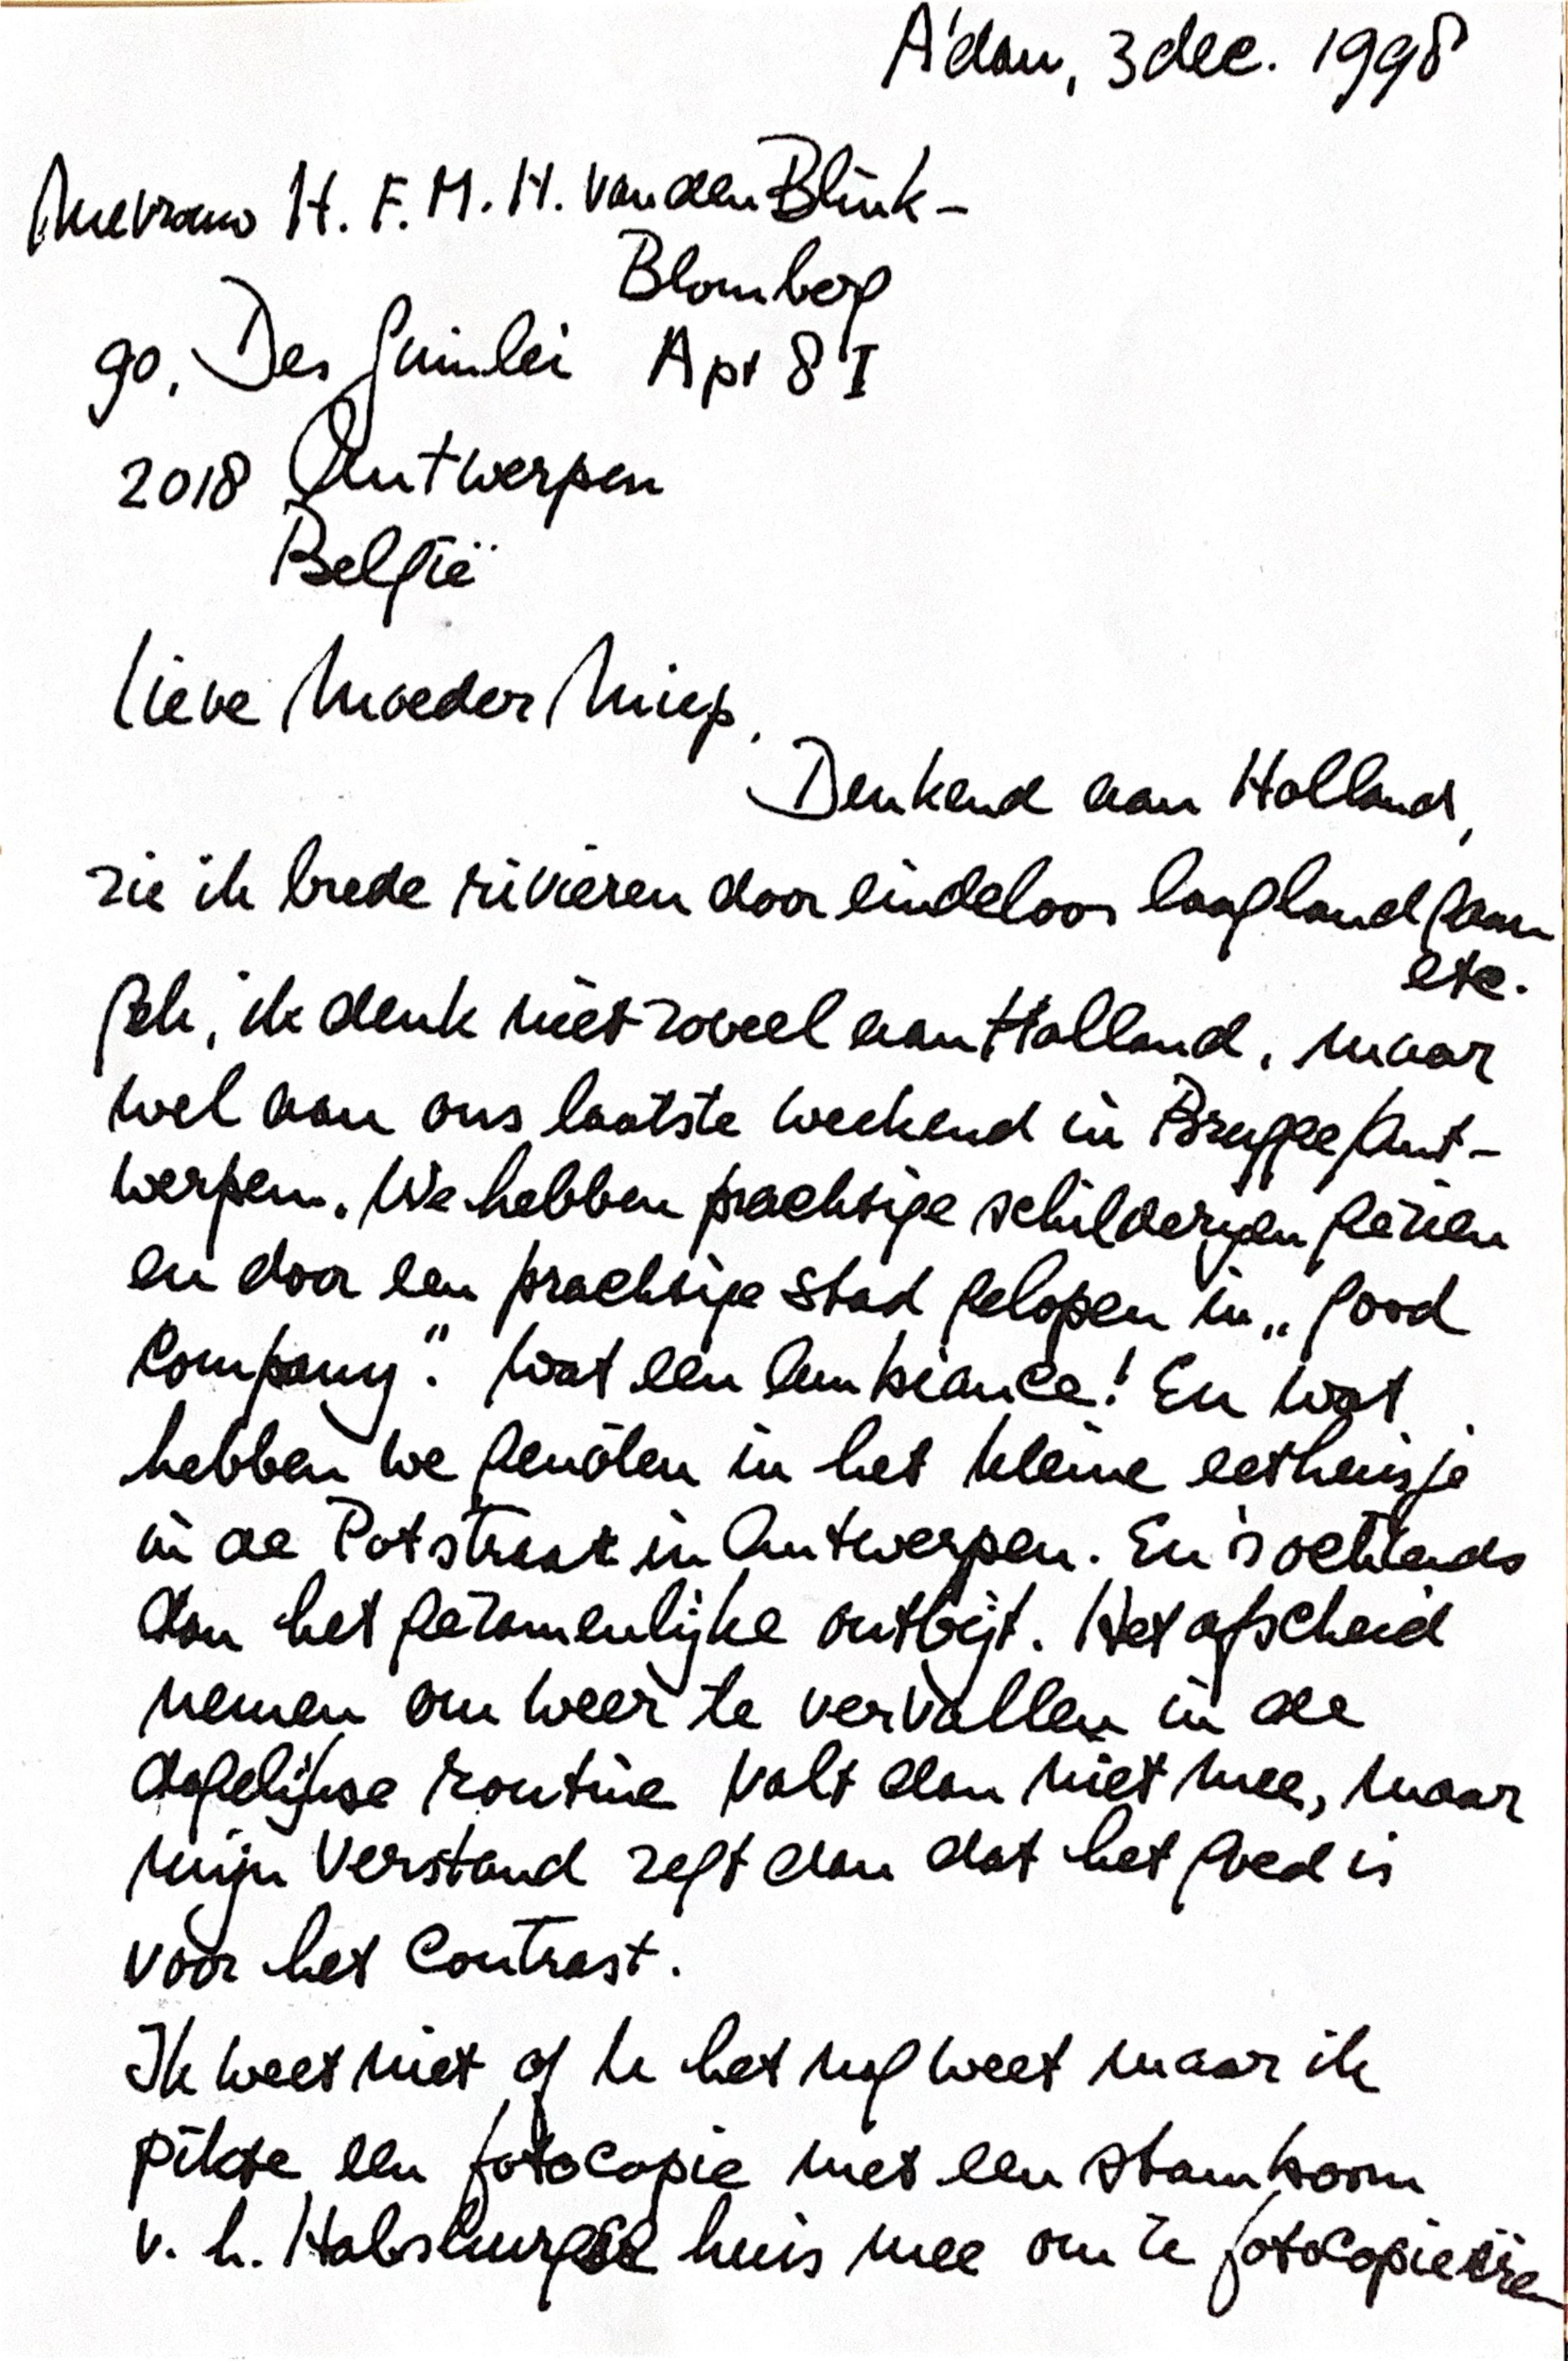 A'dam, 3 dec. 1998
Mevrouw H. F. M. H. van den Blink-
Blomberg
90, Des Guinlei Apt 8 I
2018 Antwerpen
België
Lieve Moeder Miep,
Denkend aan Holland,
zie ik brede rivieren door eindeloos laagland gaan
etc.
Goh, ik denk niet zoveel aan Holland, maar
wel aan ons laatste weekend in Brugge/Ant-
werpen. We hebben prachtige schilderijen gezien
en door een prachtige stad gelopen in „good
company". Wat een ambiance! En wat
hebben we genoten in het kleine eethuisje
in de Potstraat in Antwerpen. En 's ochtends
dan het gezamenlijke ontbijt. Het afscheid
nemen om weer te vervallen in de
dagelijkse routine valt dan niet mee, maar
mijn verstand zegt dan dat het goed is
voor het contrast.
Ik weet niet of U het nog weet maar ik
pikte een fotocopie met een stamboom
v. h. Habsburgse huis mee om te fotocopieëren